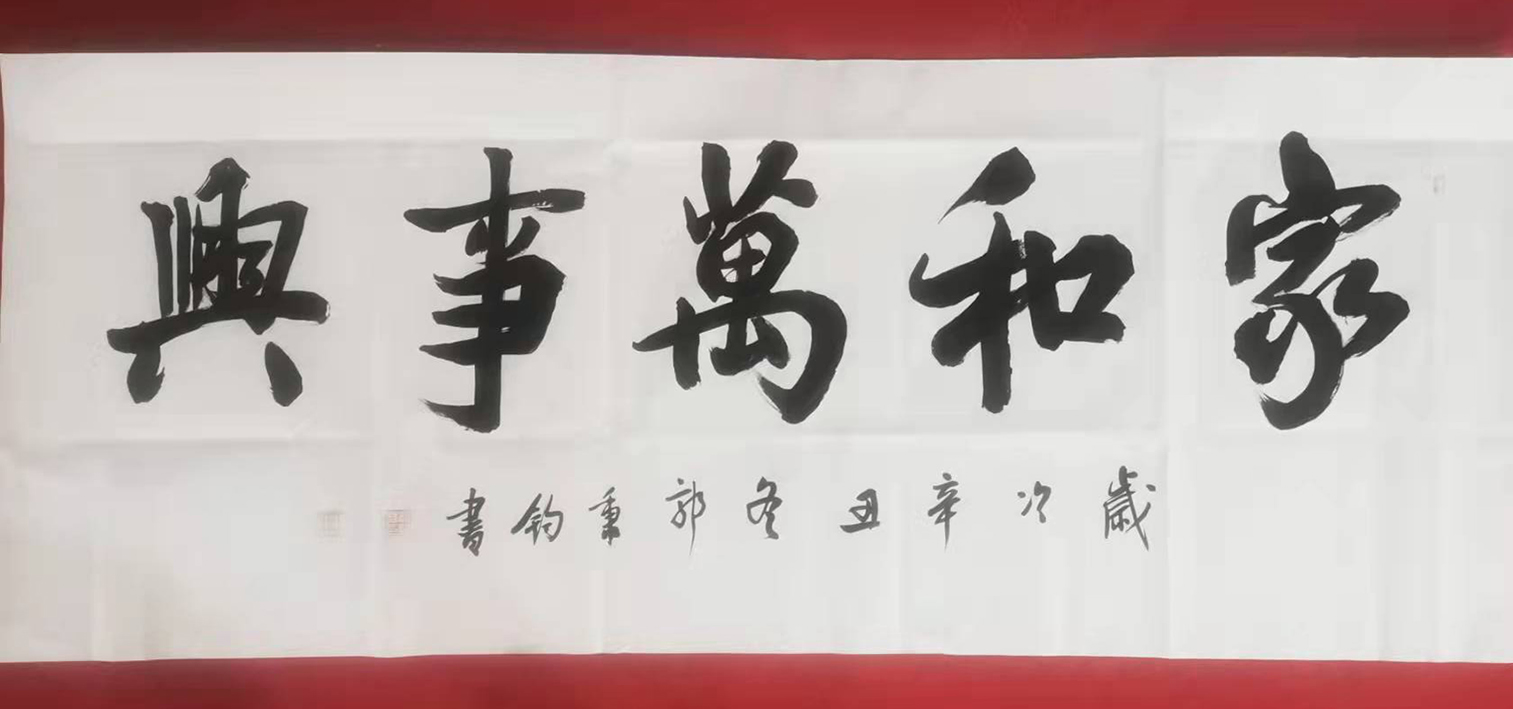 家和萬事興
歲次辛丑冬郭秉鈞書